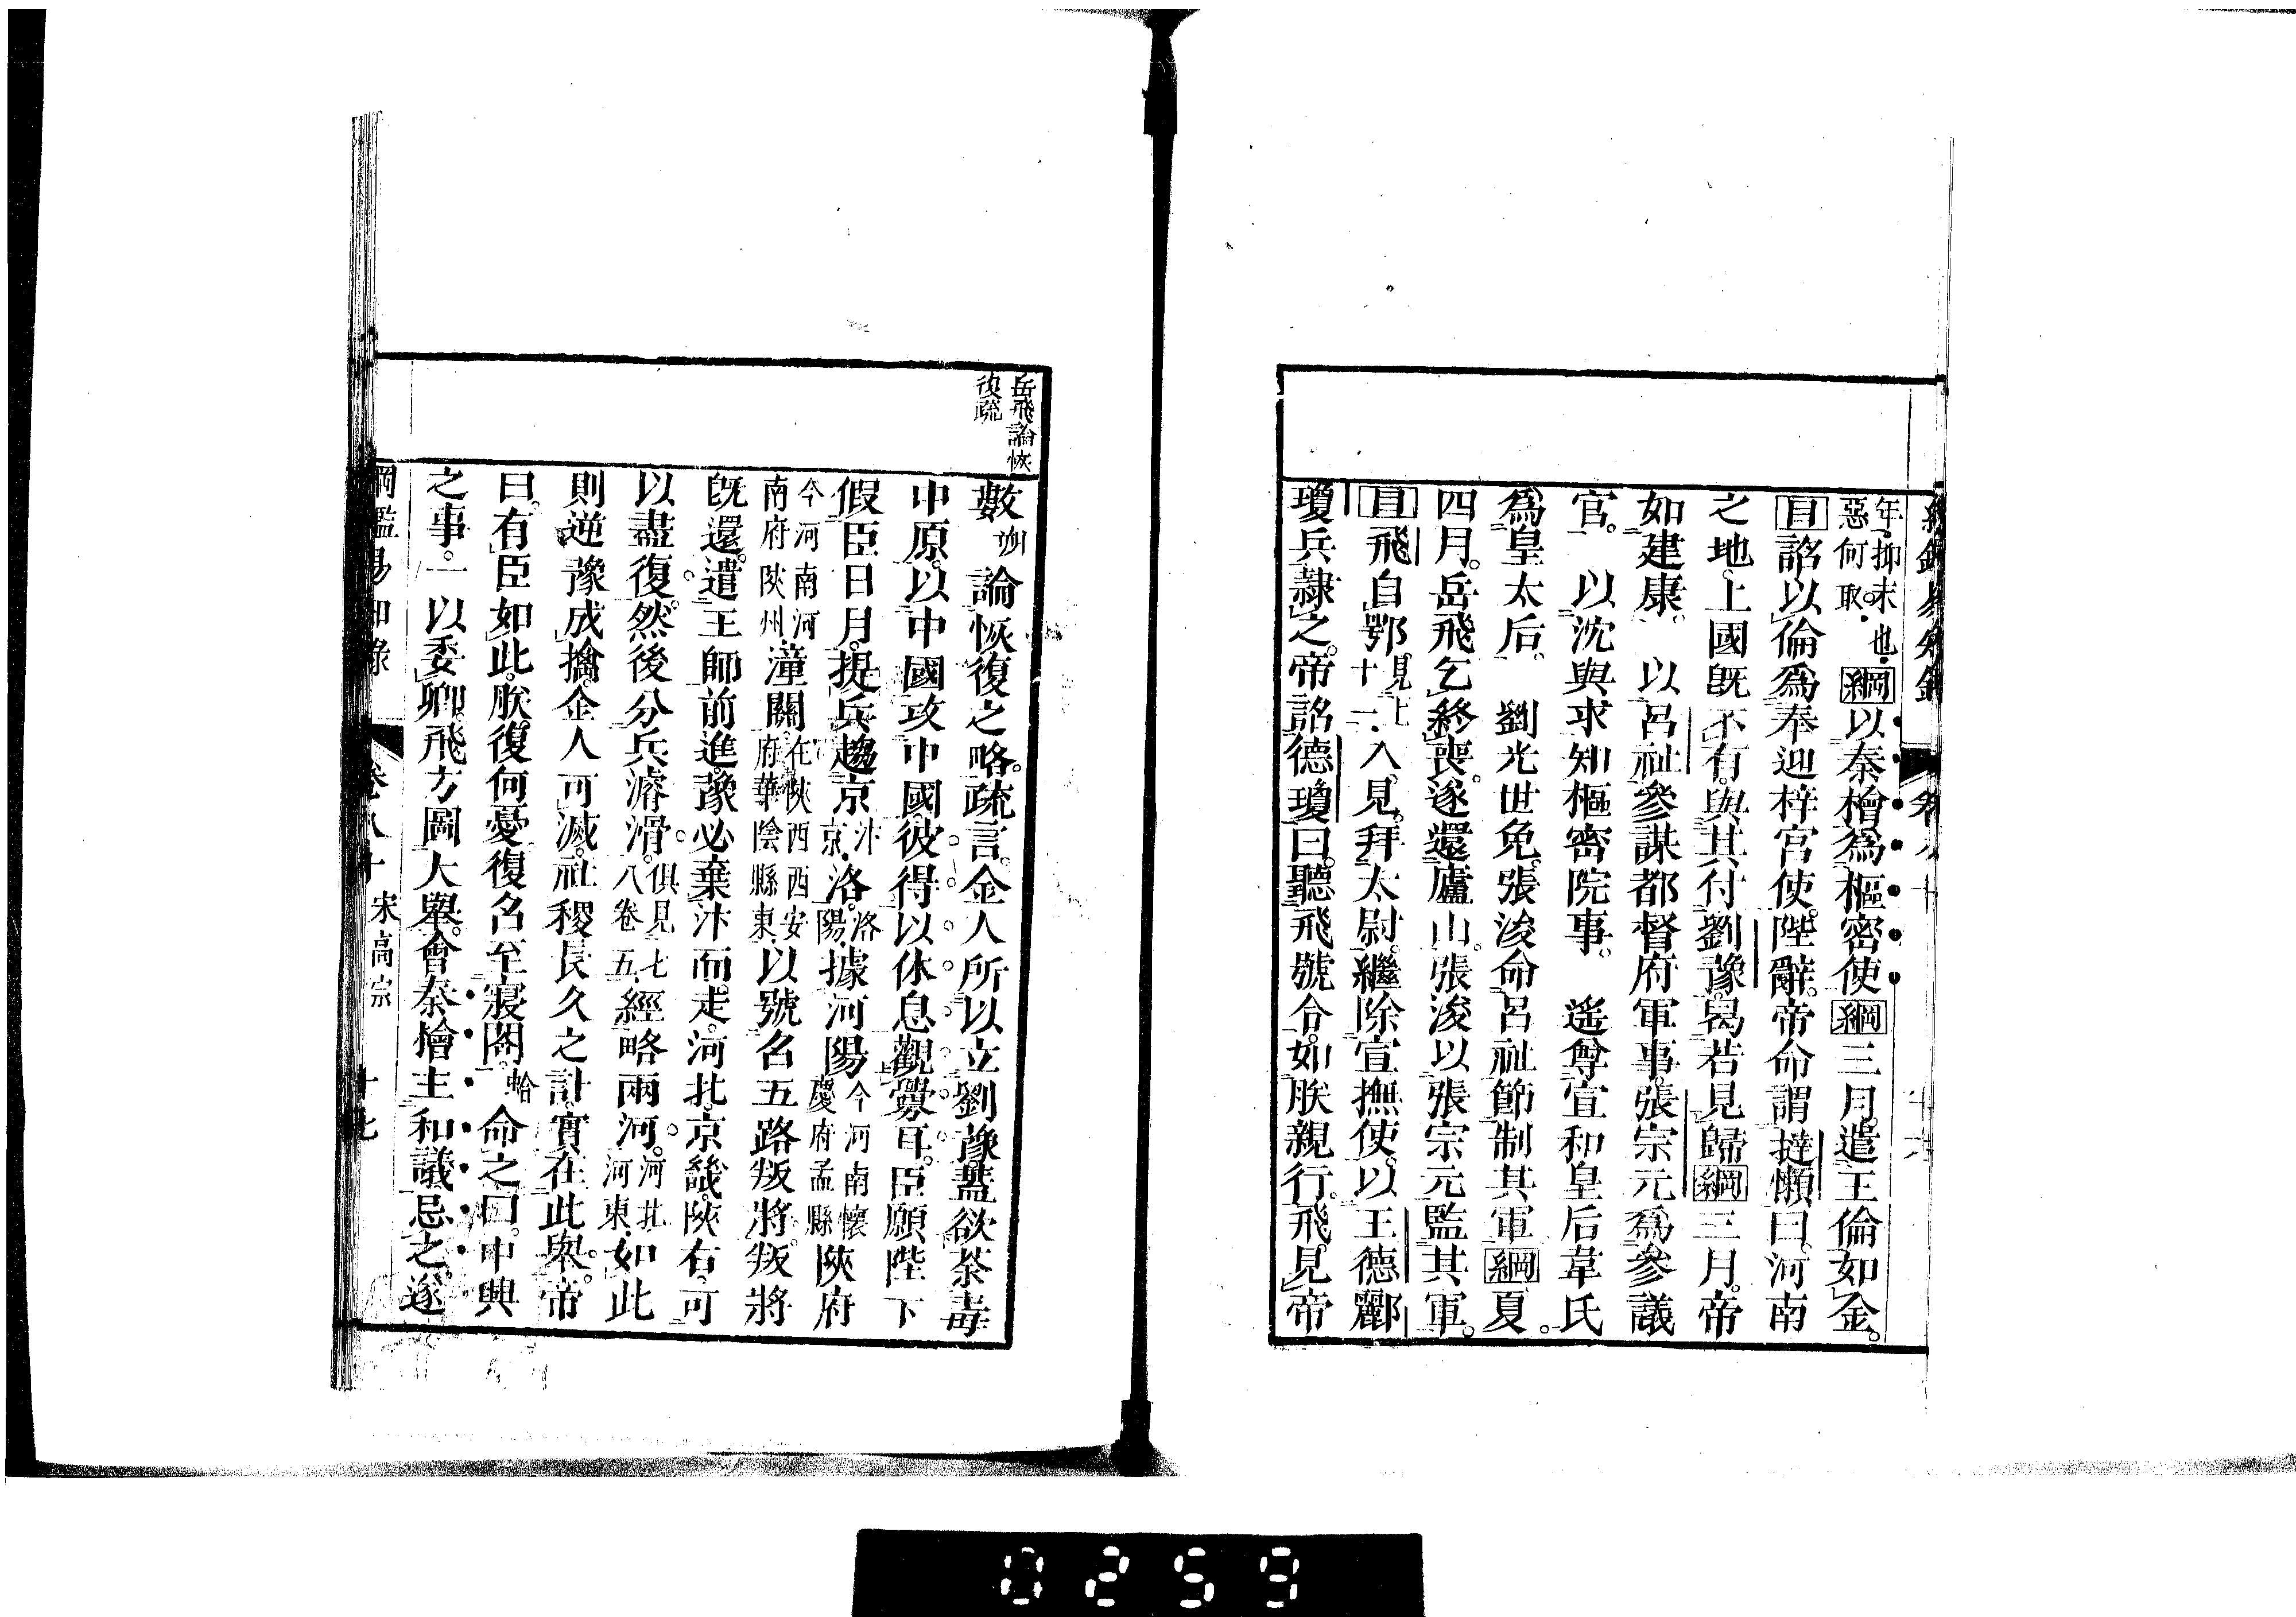 年抑末也
惡何取
綱以秦檜爲樞密使綱三月遣王倫如金
目詔以倫爲奉迎梓宮使陛辭帝命謂撻懶曰河南
之地上國旣不有與其付劉豫曷若見歸綱三月帝
如建康　以呂祉參謀都督府軍事張宗元爲參議
官　以沈與求知樞密院事　遙尊宣和皇后韋氏
爲皇太后　劉光世免張浚命呂祉節制其軍綱夏
四月岳飛乞終喪遂還廬山張浚以張宗元監其軍
目飛自鄂見上十一入見拜太尉繼除宣撫使以王德酈
瓊兵隸之帝詔德瓊曰聽飛號令如朕親行飛見帝
岳飛論恢
復疏
數朔論恢復之略疏言金人所以立劉豫蓋欲荼毒
中原以中國攻中國彼得以休息觀釁耳臣願陛下
假臣日月提兵趨京汴京洛洛陽據河陽今河南懷慶府孟縣陝府
今河南河南府陝州潼關在陝西西安府華陰縣東以號召五路叛將叛將
旣還遣王師前進豫必棄汴而走河北京畿陝右可
以盡復然後分兵濬滑俱見七八卷五經略兩河河北河東如此
則逆豫成擒金人可滅社稷長久之計實在此舉帝
曰有臣如此朕復何憂復召至寢閤蛤命之曰中興
之事一以委卿飛方圖大舉會秦檜主和議忌之遂
綱鑑易知錄　卷八十　宋高宗　十七
0259